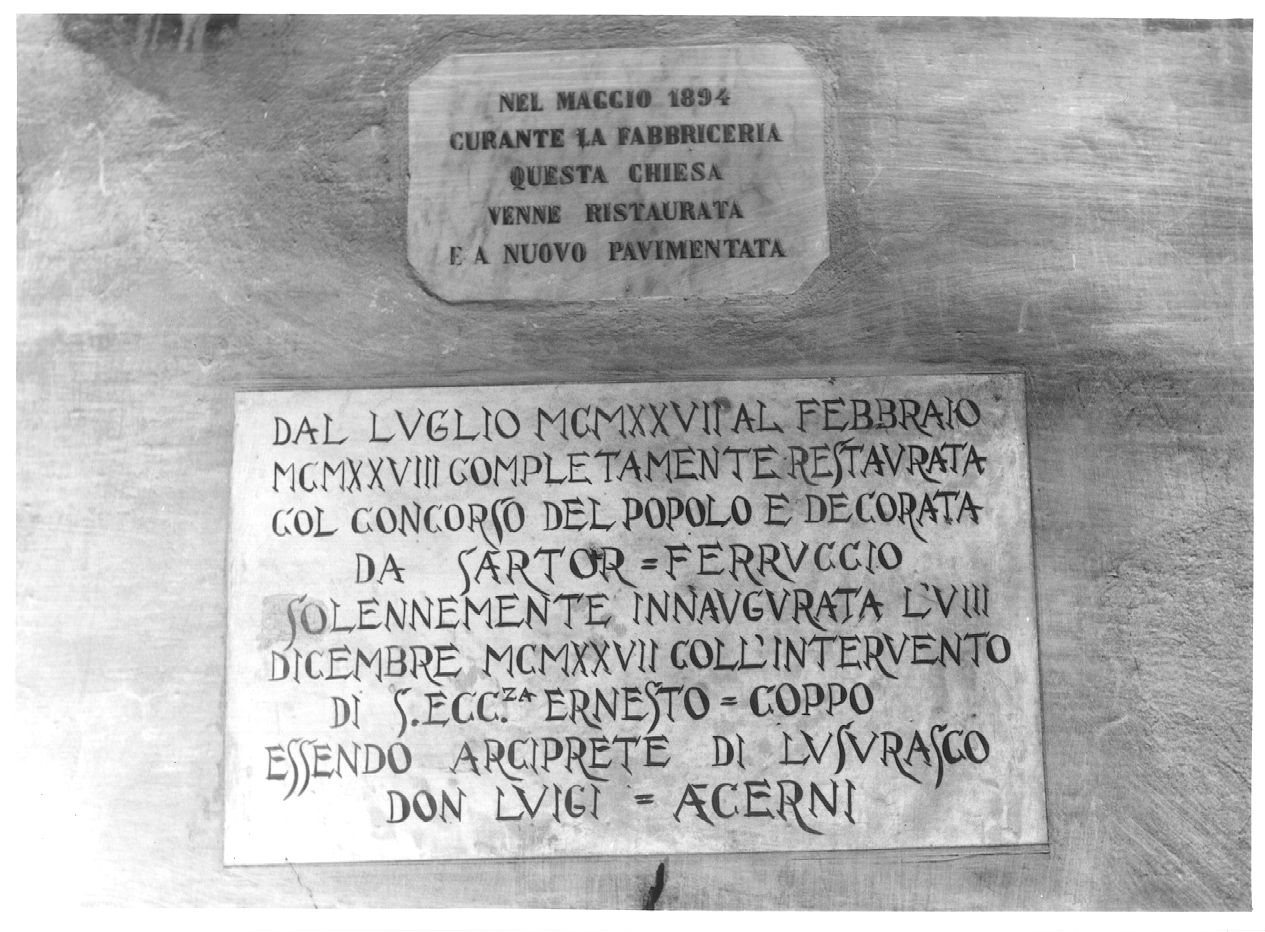 NEL MAGGIO 1894
CURANTE LA FABBRICERIA
QUESTA CHIESA
VENNE RISTAURATA
E A NUOVO PAVIMENTATA
DAL LVGLIO MCMXXVII AL FEBBRAIO
MCMXXVIII COMPLETAMENTE RESTAVRATA
COL CONCORSO DEL POPOLO E DECORATA
DA SARTOR = FERRVCCIO
SOLENNEMENTE INNAVGVRATA L'VIII
DICEMBRE MCMXXVII COLL'INTERVENTO
DI S. ECC.ZA ERNESTO = COPPO
ESSENDO ARCIPRETE DI LVSVRASCO
DON LVIGI = ACERNI